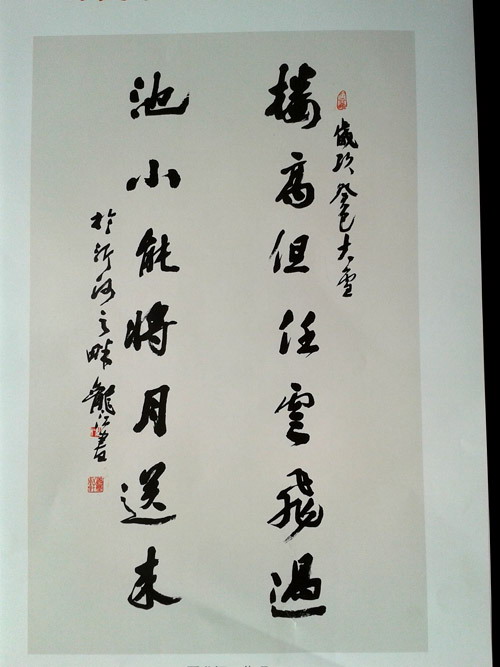 歲次癸巳大雪
楼高但任雲飛過
池小能將月送来
於沂河之畔龍江書